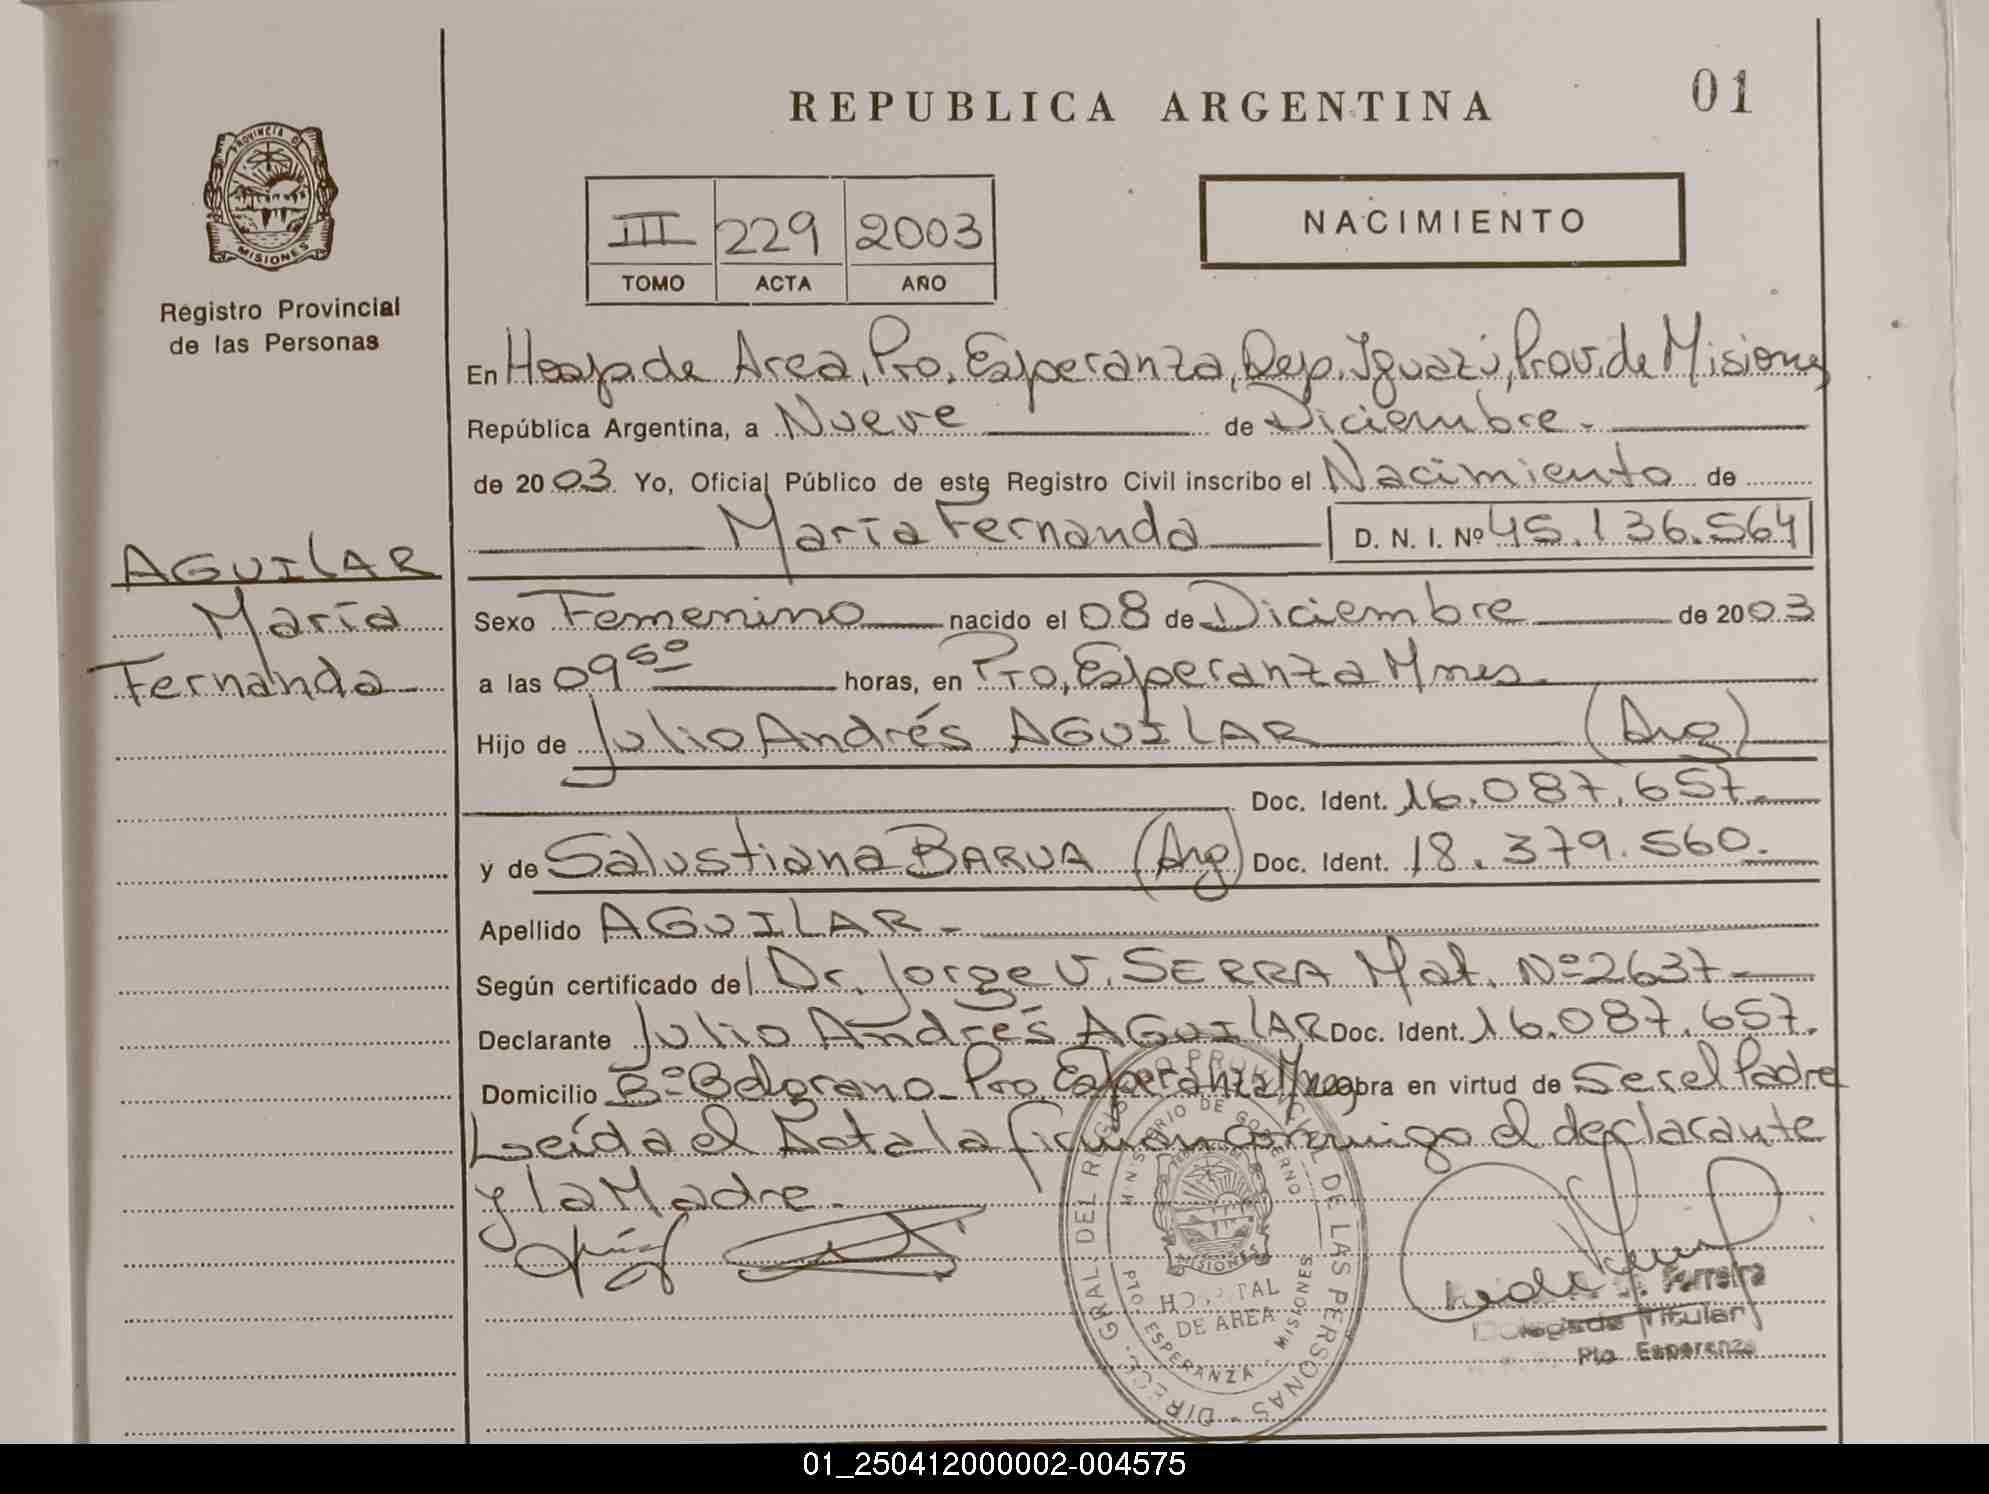 REPUBLICA ARGENTINA
01
PROVINCIA D
MISIONES
Registro Provincial
de las Personas
III 229 2003
TOMO ACTA AÑO
NACIMIENTO
En Hosp. de Area, Pto. Esperanza, Dep. Iguazú, Prov. de Misiones
República Argentina, a Nueve de Diciembre.
de 2003 Yo, Oficial Público de este Registro Civil inscribo el Nacimiento de
María Fernanda D. N. I. Nº 45.136.564
AGUILAR
María
Fernanda
Sexo Femenino nacido el 08 de Diciembre de 2003
a las 09 50 horas, en Pto, Esperanza Mnes.
Hijo de Julio Andrés AGUILAR (Arg)
Doc. Ident. 16.087.657.
y de Salustiana BARUA (Arg) Doc. Ident. 18.379.560.
Apellido AGUILAR.
Según certificado del Dr. Jorge V. SERRA Mat. Nº 2637
Declarante Julio Andrés AGUILAR Doc. Ident. 16.087.657.
Domicilio Bº Belgrano Pto Esperanza Mnes obra en virtud de Ser el Padre
Leída el Acta la firman conmigo el declarante
y la Madre.
DIREC. GRAL. DEL REGISTRO PROVINCIAL DE LAS PERSONAS
MINISTERIO DE GOBIERNO
MISIONES
HOSPITAL
DE AREA
PTO ESPERANZA - MISIONES
Ferreira
Delegada Titular
Pto Esperanza
01_250412000002-004575